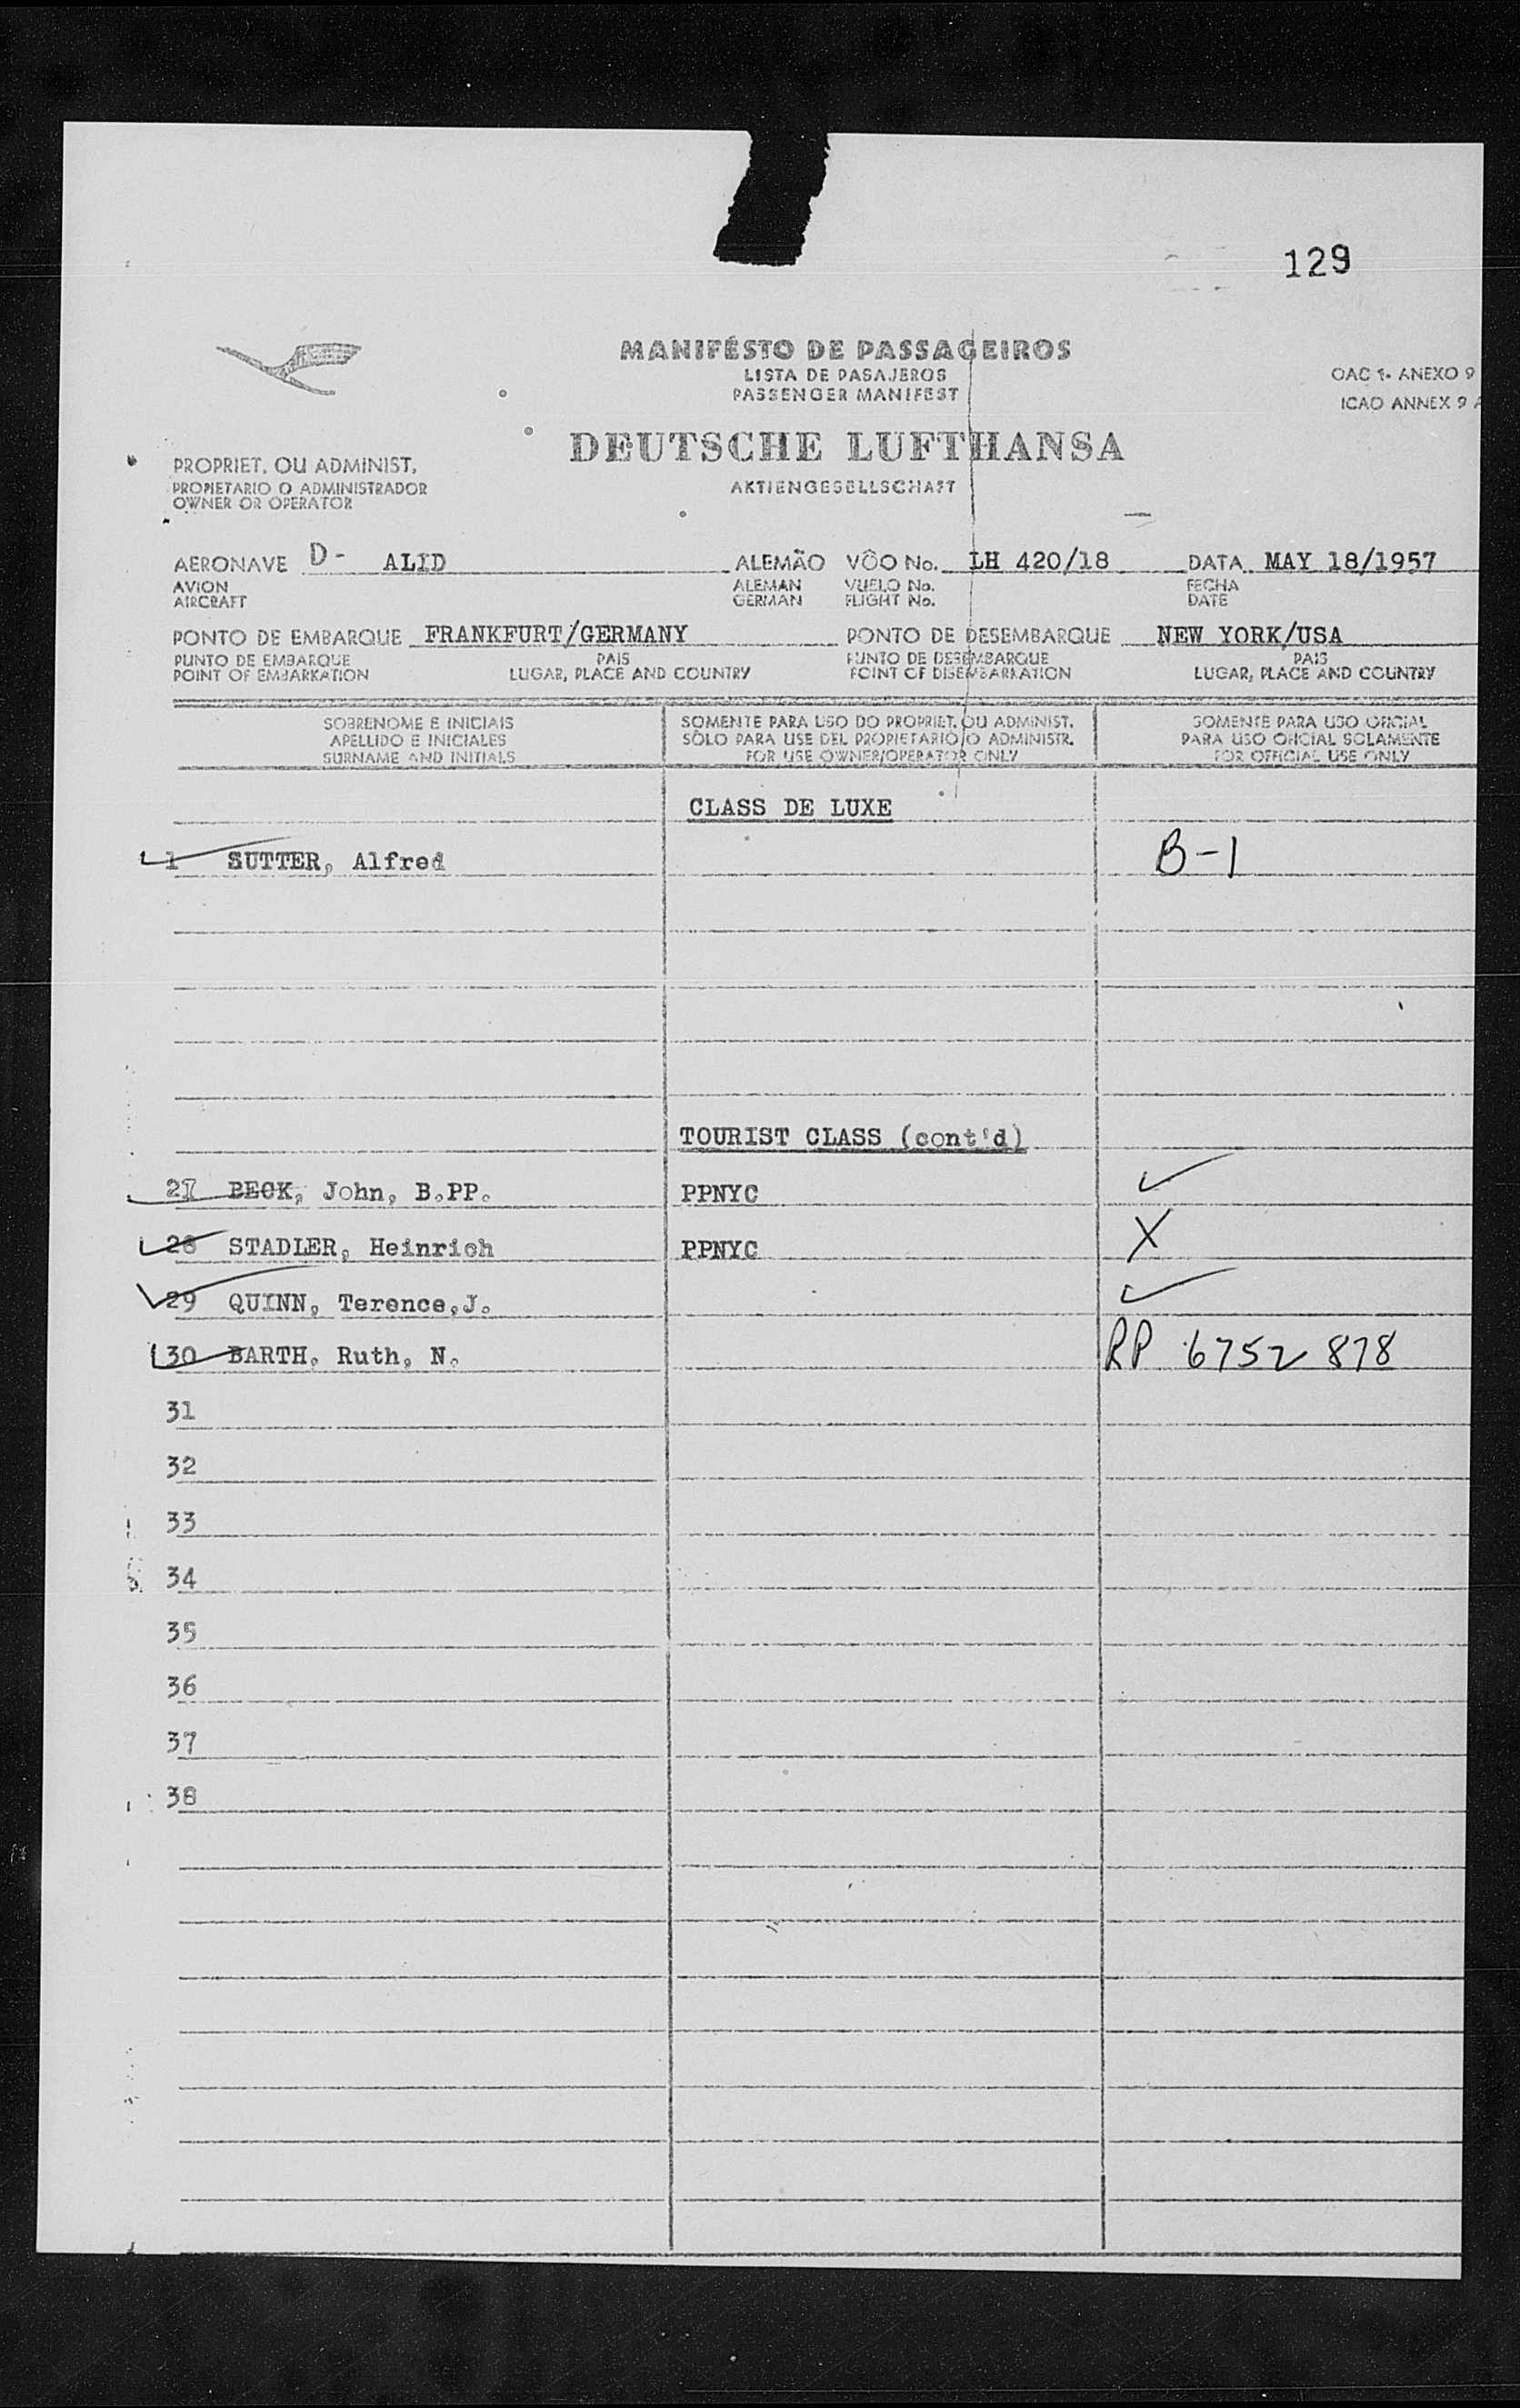 129
MANIFÉSTO DE PASSAGEIROS
LISTA DE PASAJEROS
PASSENGER MANIFEST
OAC 1- ANEXO 9
ICAO ANNEX 9
DEUTSCHE LUFTHANSA
AKTIENGESELLSCHAFT
PROPRIET. OU ADMINIST.
PROPIETARIO O ADMINISTRADOR
OWNER OR OPERATOR
AERONAVE D- ALID ALEMÃO VÔO No. LH 420/18 DATA MAY 18/1957
AVION ALEMAN VUELO No. FECHA
AIRCRAFT GERMAN FLIGHT No. DATE
PONTO DE EMBARQUE FRANKFURT/GERMANY PONTO DE DESEMBARQUE NEW YORK/USA
PUNTO DE EMBARQUE PAIS PUNTO DE DESEMBARQUE PAIS
POINT OF EMBARKATION LUGAR, PLACE AND COUNTRY POINT OF DISEMBARKATION LUGAR, PLACE AND COUNTRY
SOBRENOME E INICIAIS SOMENTE PARA USO DO PROPRIET. OU ADMINIST. SOMENTE PARA USO OFICIAL
APELLIDO E INICIALES SÓLO PARA USE DEL PROPIETARIO O ADMINISTR. PARA USO OFICIAL SOLAMENTE
SURNAME AND INITIALS FOR USE OWNER/OPERATOR ONLY FOR OFFICIAL USE ONLY
CLASS DE LUXE
1 SUTTER, Alfred B-1
TOURIST CLASS (cont'd)
27 BECK, John, B.PP. PPNYC ✓
28 STADLER, Heinrich PPNYC X
29 QUINN, Terence,J. ✓
30 BARTH, Ruth, N. RP 6752 878
31
32
33
34
35
36
37
38